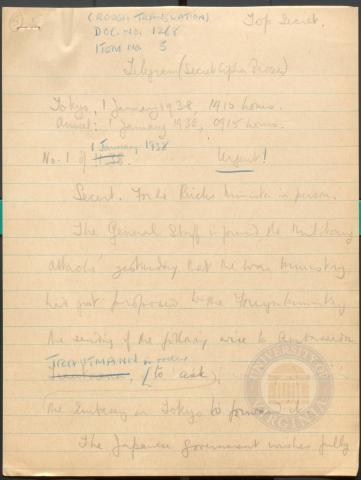 (ROUGH TRANSLATION)
Top Secret.
DOC. NO. 1268
ITEM NO 3
Telegram (Secret Cipher Process)
Tokyo, 1 January 1938, 1910 hours.
Arrival: 1 January 1938, 0915 hours.
1 January 1938
No. 1 of
Urgent!
Secret. For the Reichs Minister in person.
The General Staff informed the Military
attaché yesterday that the War Ministry
had just proposed to the Foreign Ministry
the sending of the following wire to Ambassador
TRAUTMANN in order
(to ask)
the Embassy in Tokyo to forward it.
The Japanese government wishes fully
UNIVERSITY OF VIRGINIA